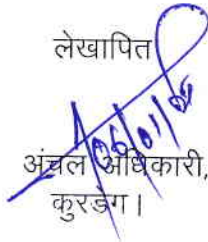 लेखापित
06/01/25
अंचल अधिकारी,
कुरडेग।